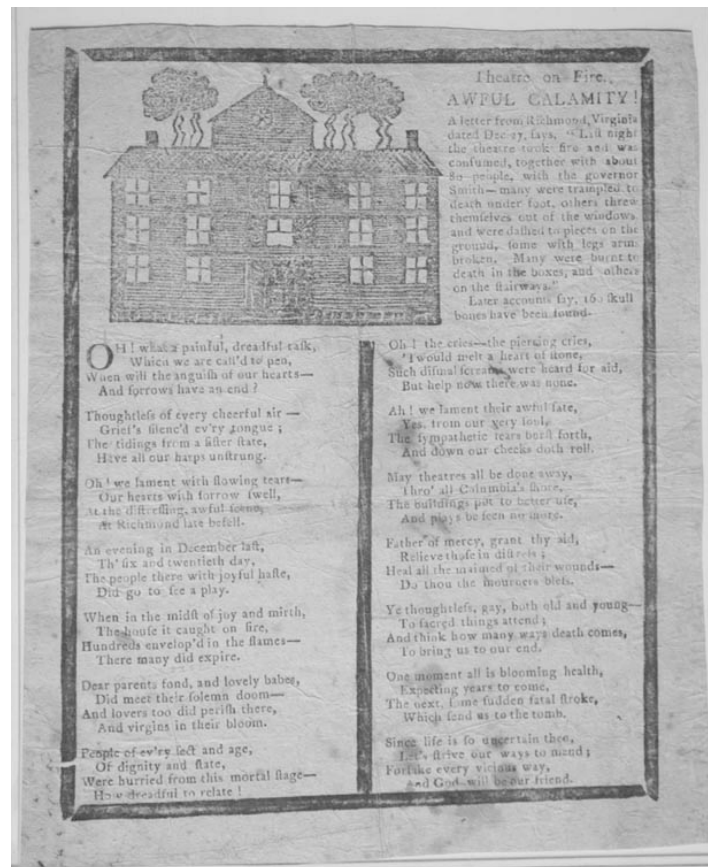 Theatre on Fire.
AWFUL CALAMITY!
A letter from Richmond, Virginia
dated Dec. 27, ſays, "Laſt night
the theatre took fire and was
conſumed, together with about
80 people, with the governor
Smith—many were trampled to
death under foot, others threw
themſelves out of the windows
and were daſhed to pieces on the
ground, ſome with legs arms
broken. Many were burnt to
death in the boxes, and others
on the ſtairways."
Later accounts ſay, 160 ſkull
bones have been found.
OH! what a painful, dreadful taſk,
Which we are call'd to pen,
When will the anguiſh of our hearts—
And ſorrows have an end?
Thoughtleſs of every cheerful air—
Grief's ſilenc'd ev'ry tongue;
The tidings from a ſiſter ſtate,
Have all our harps unſtrung.
Oh! we lament with flowing tears—
Our hearts with ſorrow ſwell,
At the diſtreſſing, awful ſcene,
At Richmond late befell.
An evening in December laſt,
Th' ſix and twentieth day,
The people there with joyful haſte,
Did go to ſee a play.
When in the midſt of joy and mirth,
The houſe it caught on fire,
Hundreds envelop'd in the flames—
There many did expire.
Dear parents fond, and lovely babes,
Did meet their ſolemn doom—
And lovers too did periſh there,
And virgins in their bloom.
People of ev'ry ſect and age,
Of dignity and ſtate,
Were hurried from this mortal ſtage—
How dreadful to relate!
Oh! the cries—the piercing cries,
'Twould melt a heart of ſtone,
Such diſmal ſcreams were heard for aid,
But help now there was none.
Ah! we lament their awful fate,
Yes, from our very ſoul,
The ſympathetic tears burſt forth,
And down our cheeks doth roll.
May theatres all be done away,
Thro' all Columbia's ſhore,
The buildings put to better uſe,
And plays be ſeen no more.
Father of mercy, grant thy aid,
Relieve thoſe in diſtreſs;
Heal all the maimed of their wounds—
Do thou the mourners bleſs.
Ye thoughtleſs, gay, both old and young—
To ſacred things attend;
And think how many ways death comes,
To bring us to our end.
One moment all is blooming health,
Expecting years to come,
The next, ſome ſudden fatal ſtroke,
Which ſend us to the tomb.
Since life is ſo uncertain then,
Let's ſtrive our ways to mend;
Forſake every vicious way,
And God will be our friend.